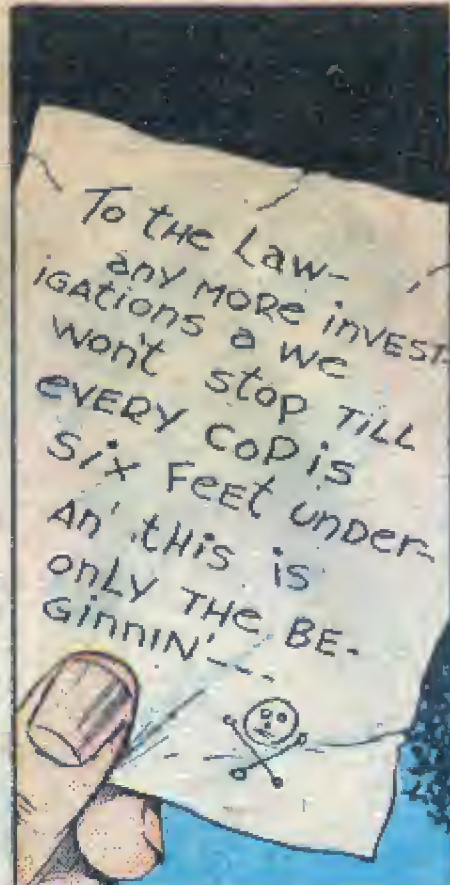 To tHe Law-
any MORe inVEST-
iGAtions a we
won't stop TiLL
eVERY CoP is
Six FeEt unDer-
An' tHis is
onLy THe BE-
GinnIN'---